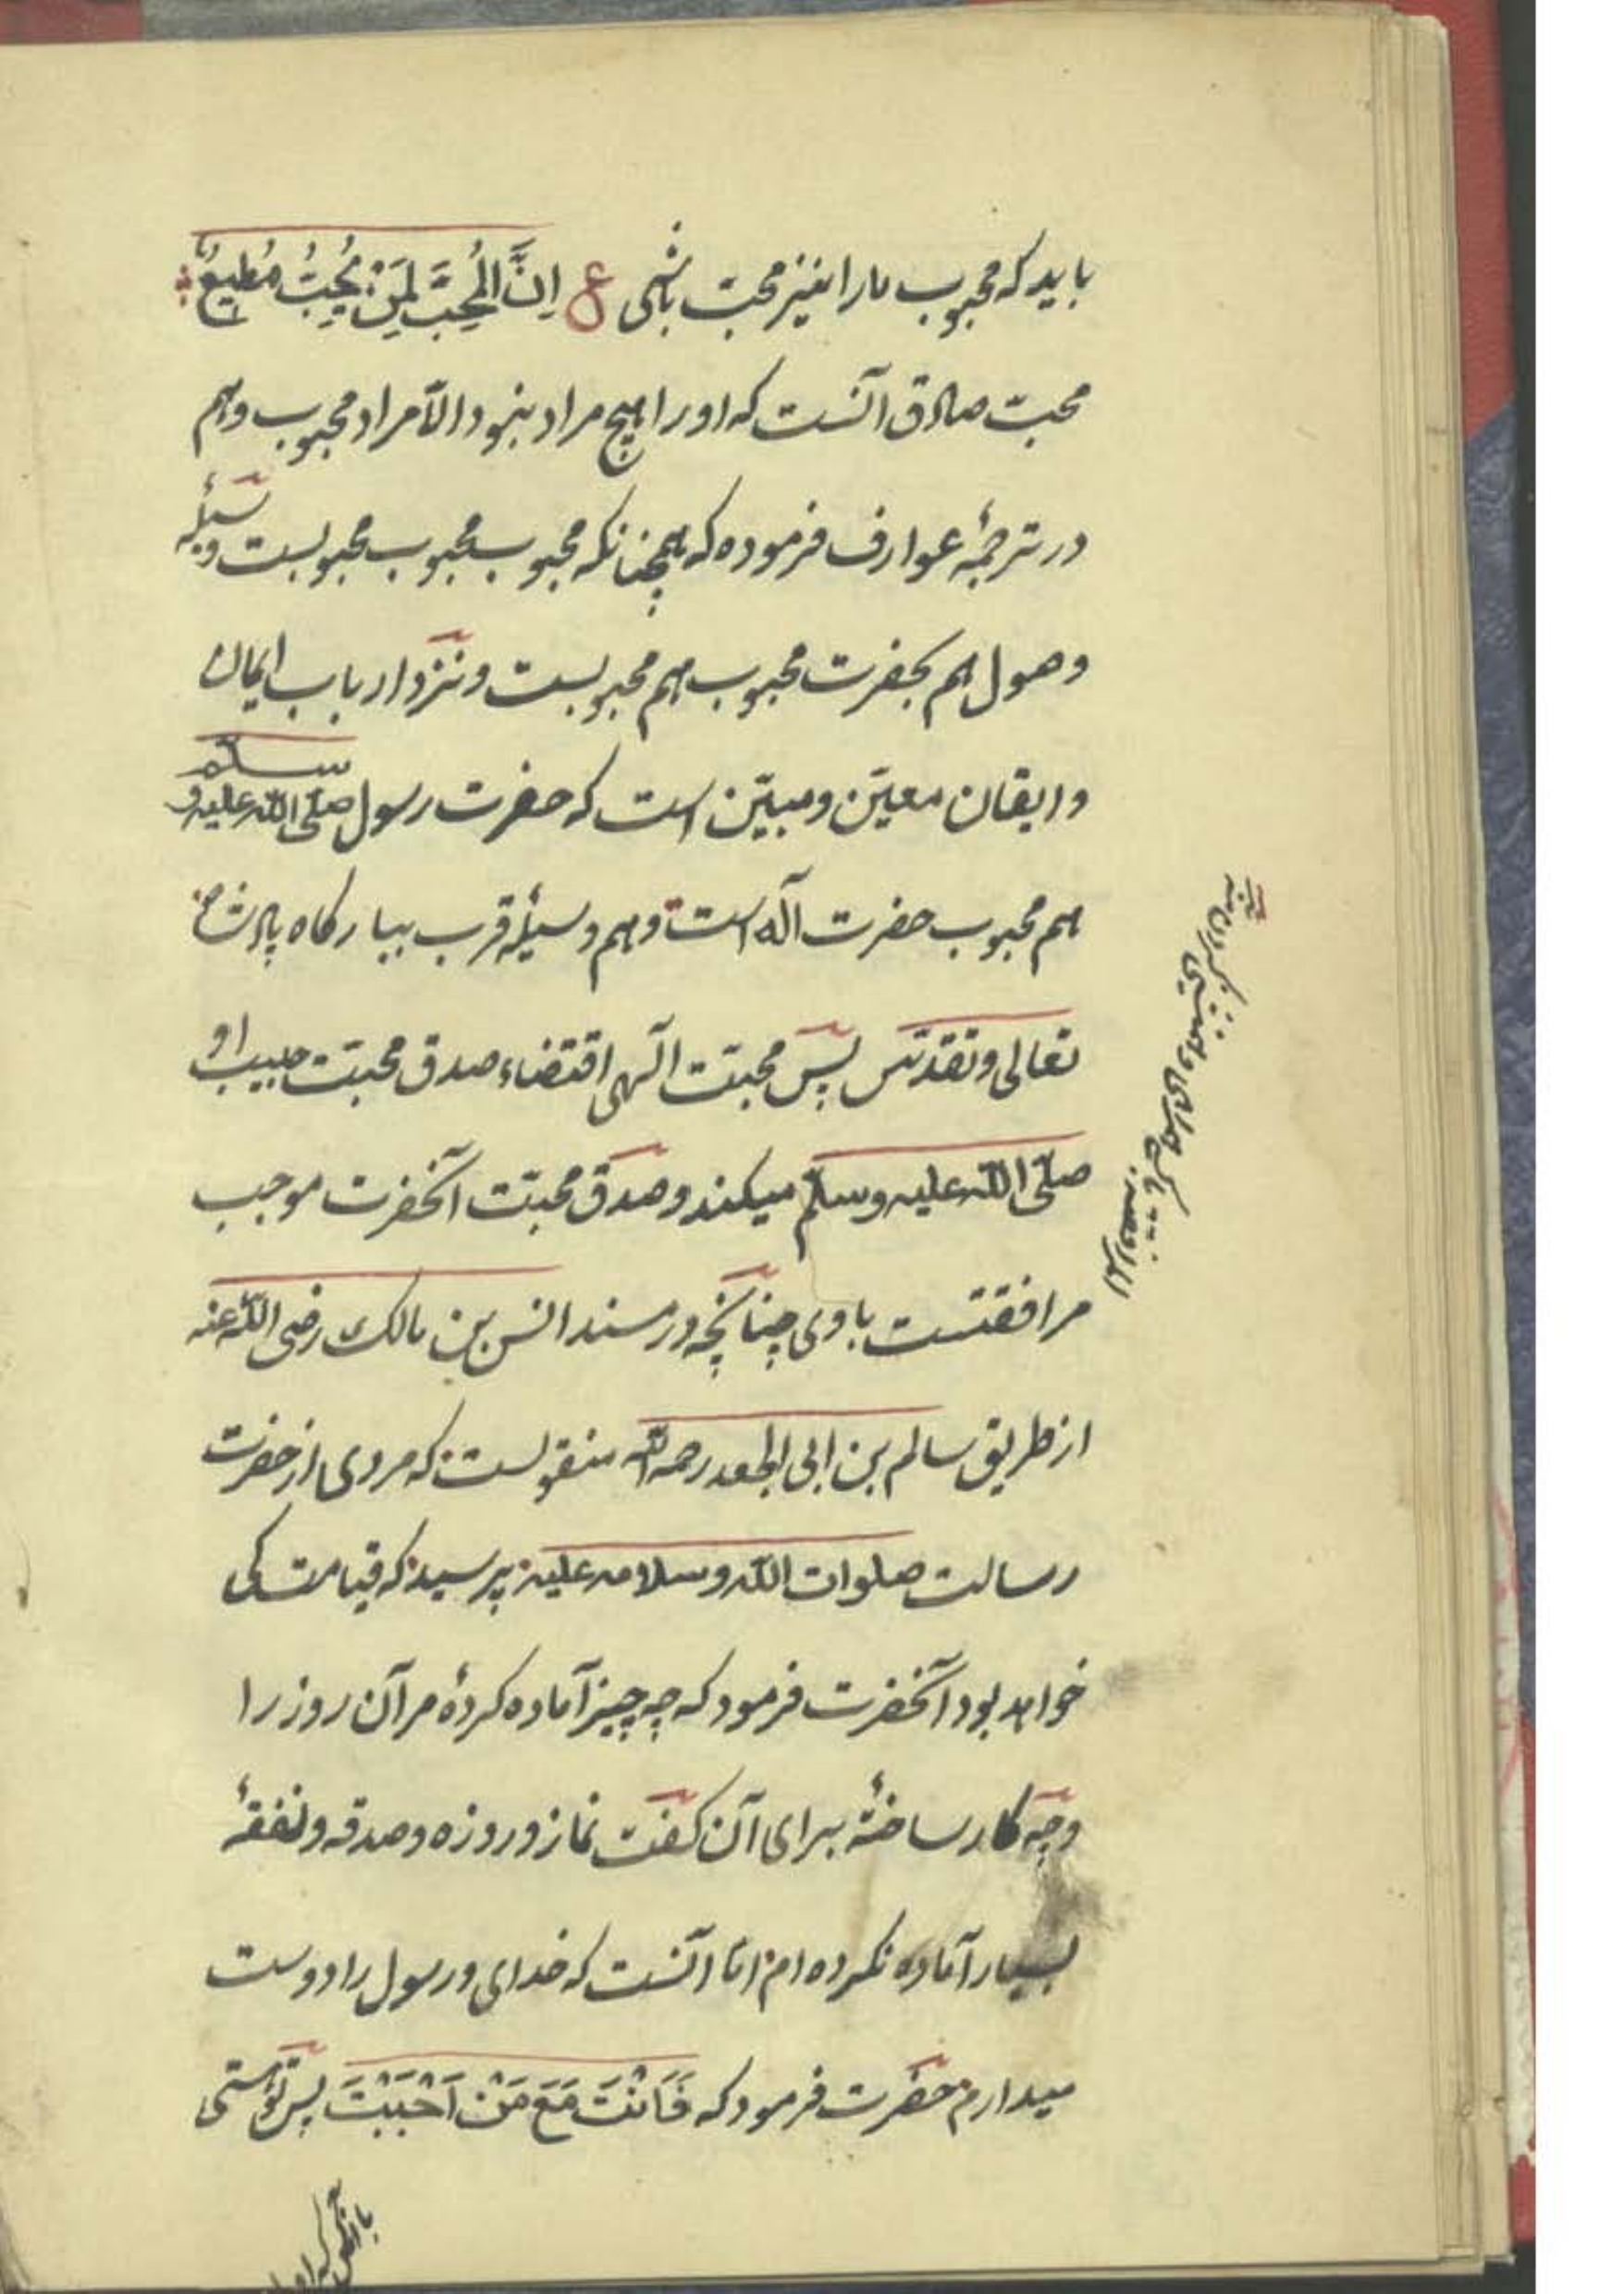 باید که محبوب مارا نیز محب باشی ع اِنَّ المُحِبَّ لِمَنْ یُحِبُّ مُطیعٌ
محبّ صادق آنست که او را هیچ مراد نبود الّا مراد محبوب و هم
در ترجمهٔ عوارف فرموده که همچنانکه محبوبِ محبوب محبوبست وسیلهٔ
وصول هم بحضرت محبوب هم محبوبست و نزد ارباب ایمان
و ایقان معیّن و مبیّن است که حضرت رسول صلّی اللّه علیه و سلّم
هم محبوب حضرت آله است و هم وسیلهٔ قرب ببارکاه پادشاه
تعالی و تقدّس پس محبّت الٓهی اقتضاء صدق محبّت حبیب او
صلّی اللّه علیه وسلّم میکند و صدق محبّت آنحضرت موجب
مرافقتست با وی چنانچه در مسند انس بن مالک رضی اللّه عنه
از طریق سالم بن ابی الجعد رحمه اللّه منقولست که مردی از حضرت
رسالت صلوات اللّه وسلامه علیه پرسید که قیامت کی
خواهد بود آنحضرت فرمود که چه چیز آماده کردهٔ مر آن روز را
و چه کار ساختهٔ برای آن کفت نماز و روزه و صدقه و نفقهٔ
بسیار آماده نکرده ام امّا آنست که خدای و رسول را دوست
میدارم حضرت فرمود که فَاَنْتَ مَعَ مَنْ اَحْبَبْتَ پس تو هستی
با آنکس که